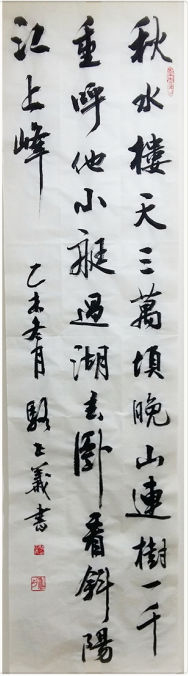 秋水樓天三萬頃晚山連樹一千
重呼他小艇過湖去卧看斜陽
江上峰
乙未春月駱上義書